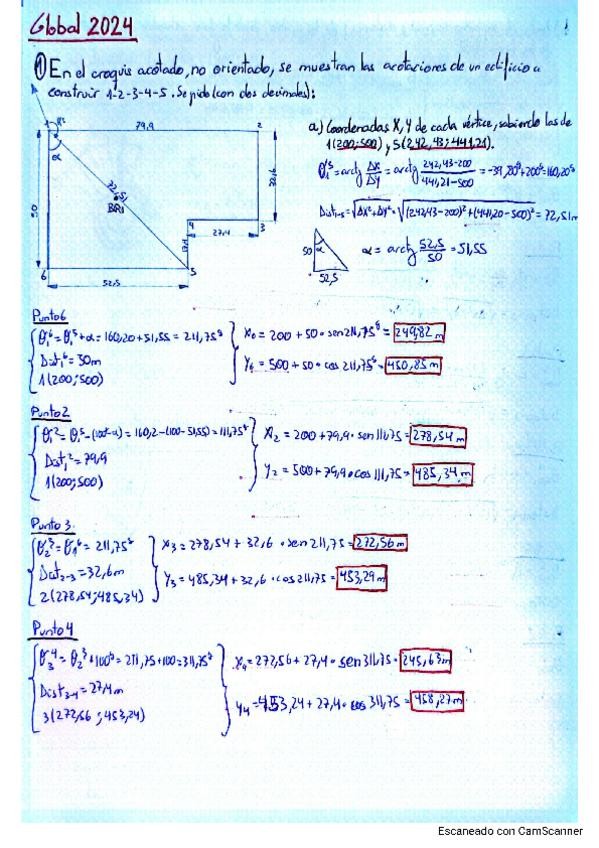 Global 2024
① En el croquis acotado, no orientado, se muestran las acotaciones de un edificio a
construir 1-2-3-4-5. Se pide (con dos decimales):
a) Coordenadas X, Y de cada vértice, sabiendo las de
1(200;500) y 5(242,43;441,21).
θ₁⁵=arctg ΔX/ΔY = arctg 242,43-200/441,21-500 = -39,80ᵍ+200ᵍ=160,20ᵍ
Dist₁₋₅=√ΔX²+ΔY² = √(242,43-200)²+(441,20-500)² = 72,51m
α = arctg 52,5/50 = 51,55
50
52,5
1
79,9
2
α
72,51
50
32,6
4
3
17,4
27,4
6
5
52,5
Punto 6
θ₁⁶=θ₁⁵+α=160,20+51,55=211,75ᵍ
Dist₁⁶=50m
1(200;500)
X₆=200+50·sen211,75ᵍ=249,82m
Y₆=500+50·cos 211,75ᵍ=450,85m
Punto 2
θ₁²=θ₁⁵-(100ᵍ-α)=160,2-(100-51,55)=111,75ᵍ
Dist₁²=79,9
1(200;500)
X₂=200+79,9·sen111,75=278,54m
Y₂=500+79,9·cos111,75=485,34m
Punto 3
θ₂³=θ₁⁶=211,75ᵍ
Dist₂₋₃=32,6m
2(278,54;485,34)
X₃=278,54+32,6·sen211,75=272,56m
Y₃=485,34+32,6·cos211,75=453,29m
Punto 4
θ₃⁴=θ₂³+100ᵍ=211,75+100=311,75ᵍ
Dist₃₋₄=27,4m
3(272,56;453,24)
X₄=272,56+27,4·sen311,75=245,63m
Y₄=453,24+27,4·cos 311,75=458,27m
Escaneado con CamScanner